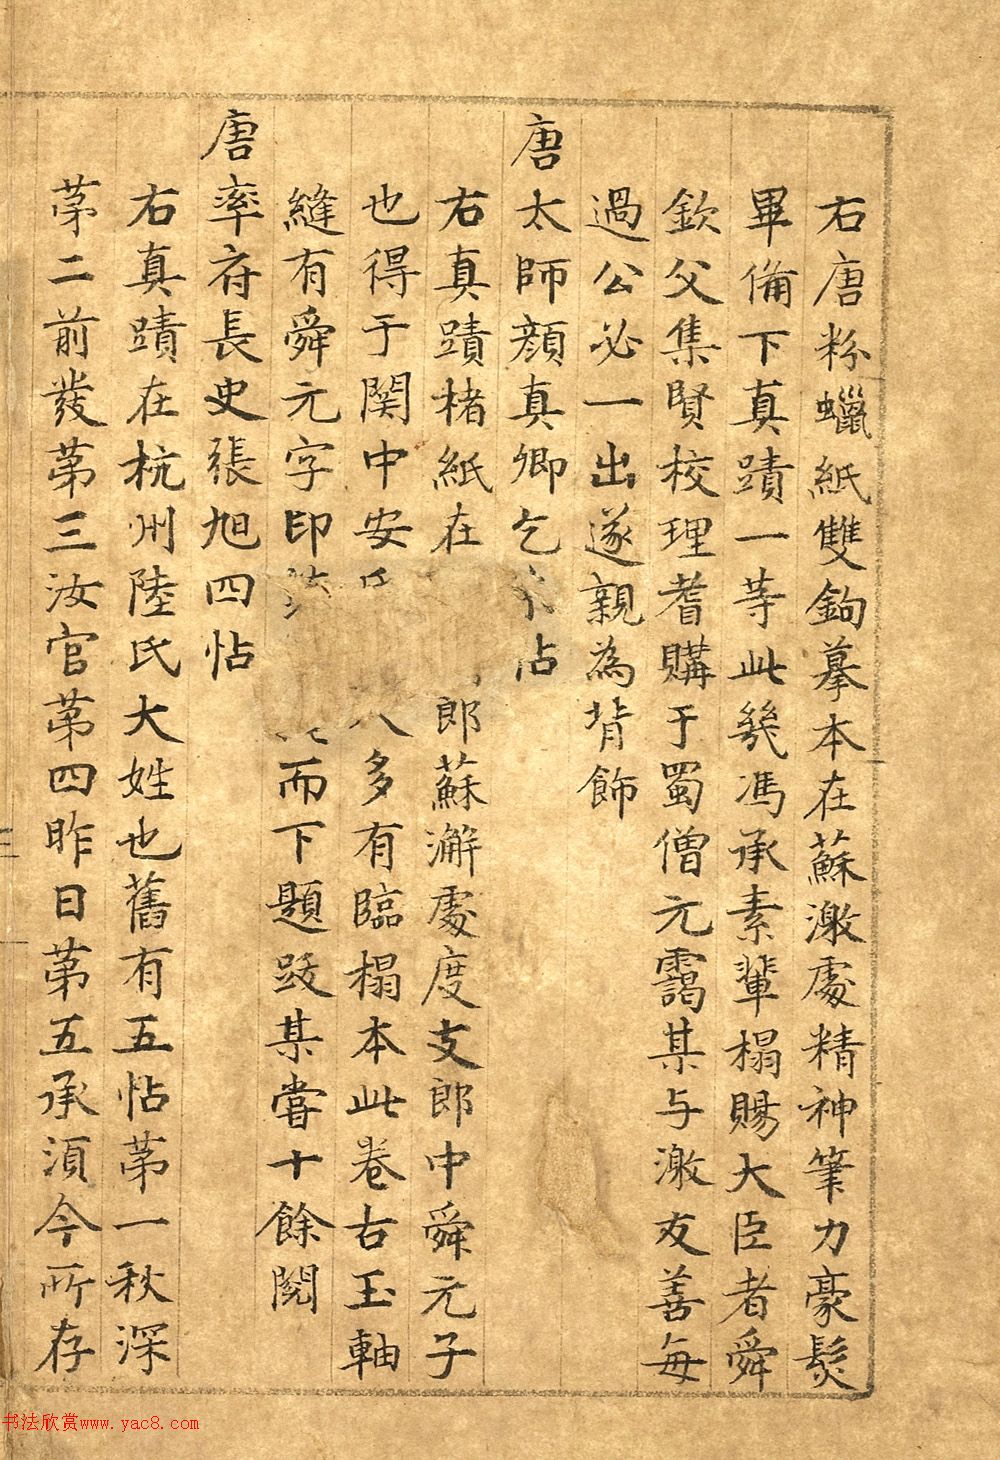 右唐粉蠟紙雙鉤摹本在蘇激處精神筆力豪髮
畢備下真蹟一等此幾馮承素輩榻賜大臣者舜
欽父集賢校理耆購于蜀僧元靄某与激友善每
過公必一出遂親為背飾
唐太師顏真卿乞米帖
右真蹟楮紙在郎蘇澥處度支郎中舜元子
也得于関中安氏人多有臨榻本此卷古玉軸
縫有舜元字印而下題跋某嘗十餘閱
唐率府長史張旭四帖
右真蹟在杭州陸氏大姓也舊有五帖第一秋深
第二前發第三汝官第四昨日第五承須今所存
书法欣赏www.yac8.com